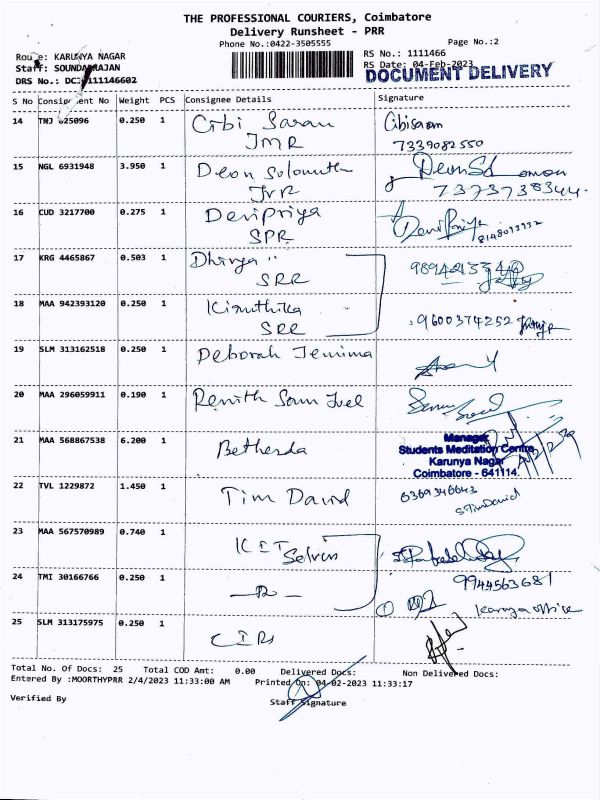 THE PROFESSIONAL COURIERS, Coimbatore
Delivery Runsheet - PRR
Phone No.:0422-3505555
Page No.:2
Route: KARUNYA NAGAR
RS No.: 1111466
Staff: SOUNDARRAJAN
RS Date: 04-Feb-2023
DRS No.: 111146602
DOCUMENT DELIVERY
S No Consignment No Weight PCS Consignee Details Signature
14 TNJ 0.250 1 Cibi Saran Cibisaran
JMR 7339082550
15 NGL 6931948 3.950 1 Deon Solomon
JVR 7373738344
16 CUD 3217700 0.275 1 Devipriya
SPR
17 KRG 4465867 0.503 1 Dhivya
SRR
18 MAA 942393120 0.250 1 Kiruthika 9600374252
SRR
19 SLM 313162518 0.250 1 Deborah Jemima
20 MAA 296059911 0.190 1 Renith Sam Juel
21 MAA 568867538 6.200 1 Bethesda
Manager
Students Meditation Centre
Karunya Nagar
Coimbatore - 641114.
22 TVL 1229872 1.450 1 Tim David
S Tim David
23 MAA 567570989 0.740 1 KIT
Selvin
9944563681
24 TMI 30166766 0.250 1
Karunya office
25 SLM 313175975 0.250 1
Total No. Of Docs: 25 Total COD Amt: 0.00 Delivered Docs: Non Delivered Docs:
Entered By :MOORTHYPRR 2/4/2023 11:33:00 AM Printed On: 04-02-2023 11:33:17
Verified By
Staff Signature